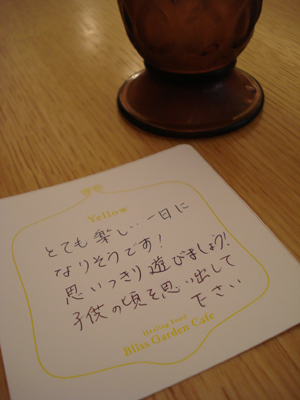 Yellow
とても楽しい一日に
なりそうです!
思いっきり遊びましょう!
子供の頃を思い出して
下さい
Healing Food
Bliss Garden Cafe